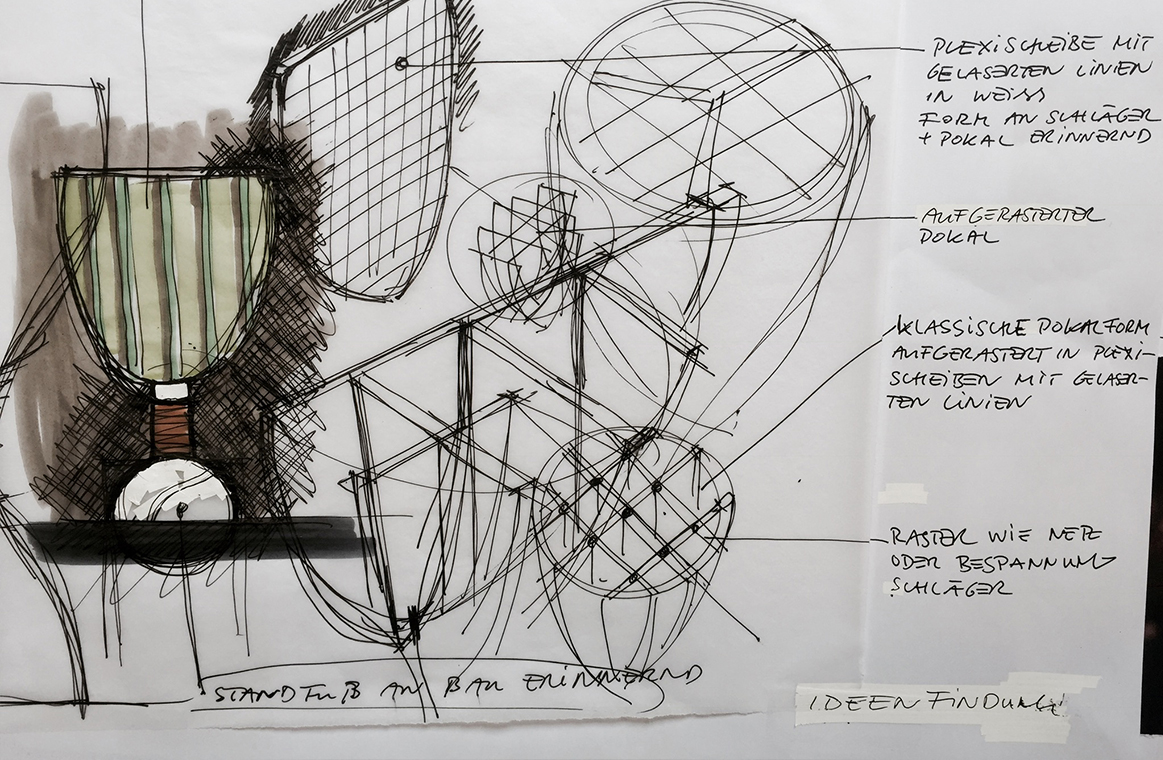 PLEXISCHEIBE MIT
GELASERTEN LINIEN
IN WEISS
FORM AN SCHLÄGER
+ POKAL ERINNERND
AUFGERASTERTER
POKAL
KLASSISCHE POKALFORM
AUFGERASTERT IN PLEXI-
SCHEIBEN MIT GELASER-
TEN LINIEN
RASTER WIE NETZ
ODER BESPANNUNG
SCHLÄGER
STANDFUß AN BALL ERINNERND
IDEENFINDUNG